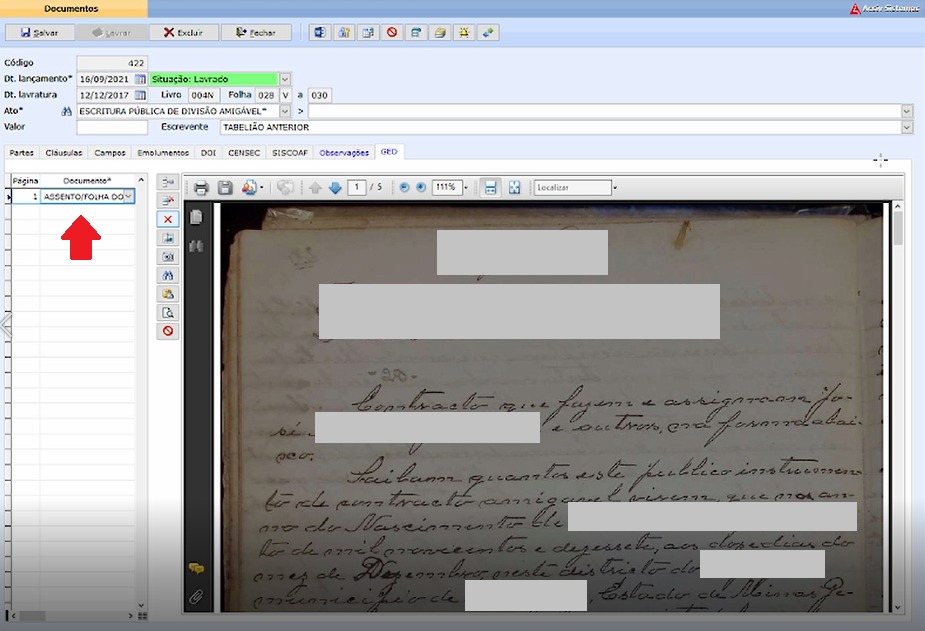 Documentos
Assiv Sistemas
Salvar Lavrar Excluir Fechar
Código 422
Dt. lançamento* 16/09/2021 Situação: Lavrado
Dt. lavratura 12/12/2017 Livro 004N Folha 028 V a 030
Ato* ESCRITURA PÚBLICA DE DIVISÃO AMIGÁVEL* >
Valor Escrevente TABELIÃO ANTERIOR
Partes Cláusulas Campos Emolumentos DOI CENSEC SISCOAF Observações GED
Página Documento*
1 ASSENTO/FOLHA DO
1 / 5 111% Localizar
-20-
Contracto que fazem e assignam Jo-
sé e outros, na forma abai-
xo.
Saibam quantos este publico instrumen-
to de contracto amigavel virem, que no an-
no do Nascimento de
to de mil novecentos e dezessete, aos doze dias do
mez de Dezembro, neste districto do
municipio de , Estado de Minas Ge-